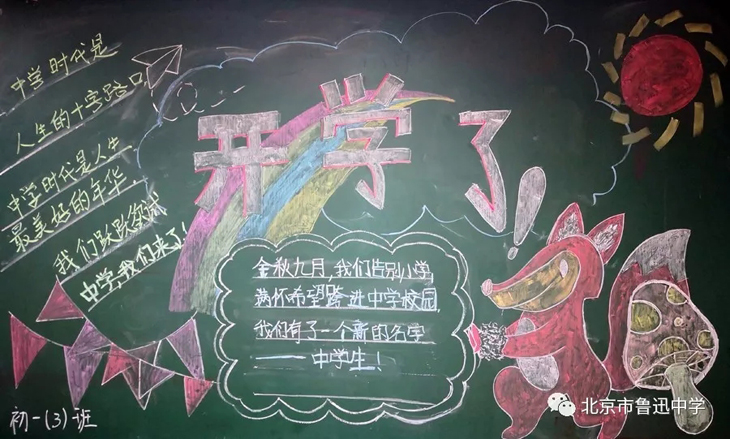 中学时代是
人生的十字路口
中学时代是人生
最美好的年华
我们跃跃欲试
中学,我们来了!
开学了!
金秋九月,我们告别小学,
满怀希望跨进中学校园,
我们有了一个新的名字
——中学生!
初一(3)班
北京市鲁迅中学